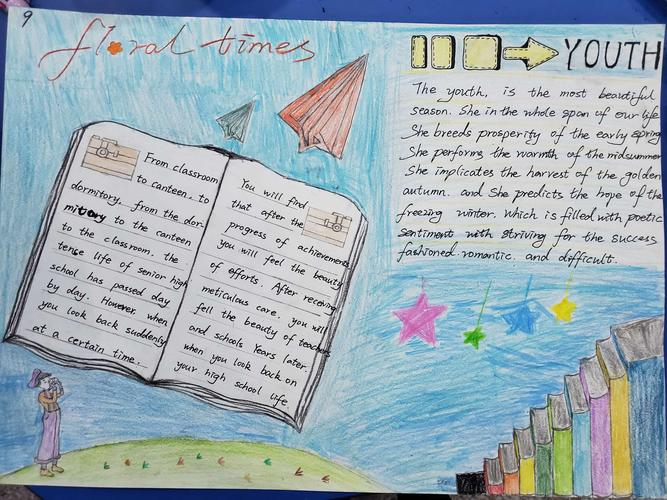 9
floral times
YOUTH
The youth, is the most beautiful
season. She in the whole span of our life
She breeds prosperity of the early spring
She performs the warmth of the midsummer
She implicates the harvest of the golden
autumn. and She predicts the hope of the
freezing winter. which is filled with poetic
sentiment with striving for the success
fashioned. romantic. and difficult.
From classroom
to canteen, to
dormitory, from the dor-
mitory to the canteen
to the classroom, the
tense life of senior high
school has passed day
by day. However, when
you look back suddenly
at a certain time.
You will find
that after the
progress of achievements
you will feel the beauty
of efforts. After receiving
meticulous care, you will
fell the beauty of teachers
and schools Years later.
when you look back on
your high school life.